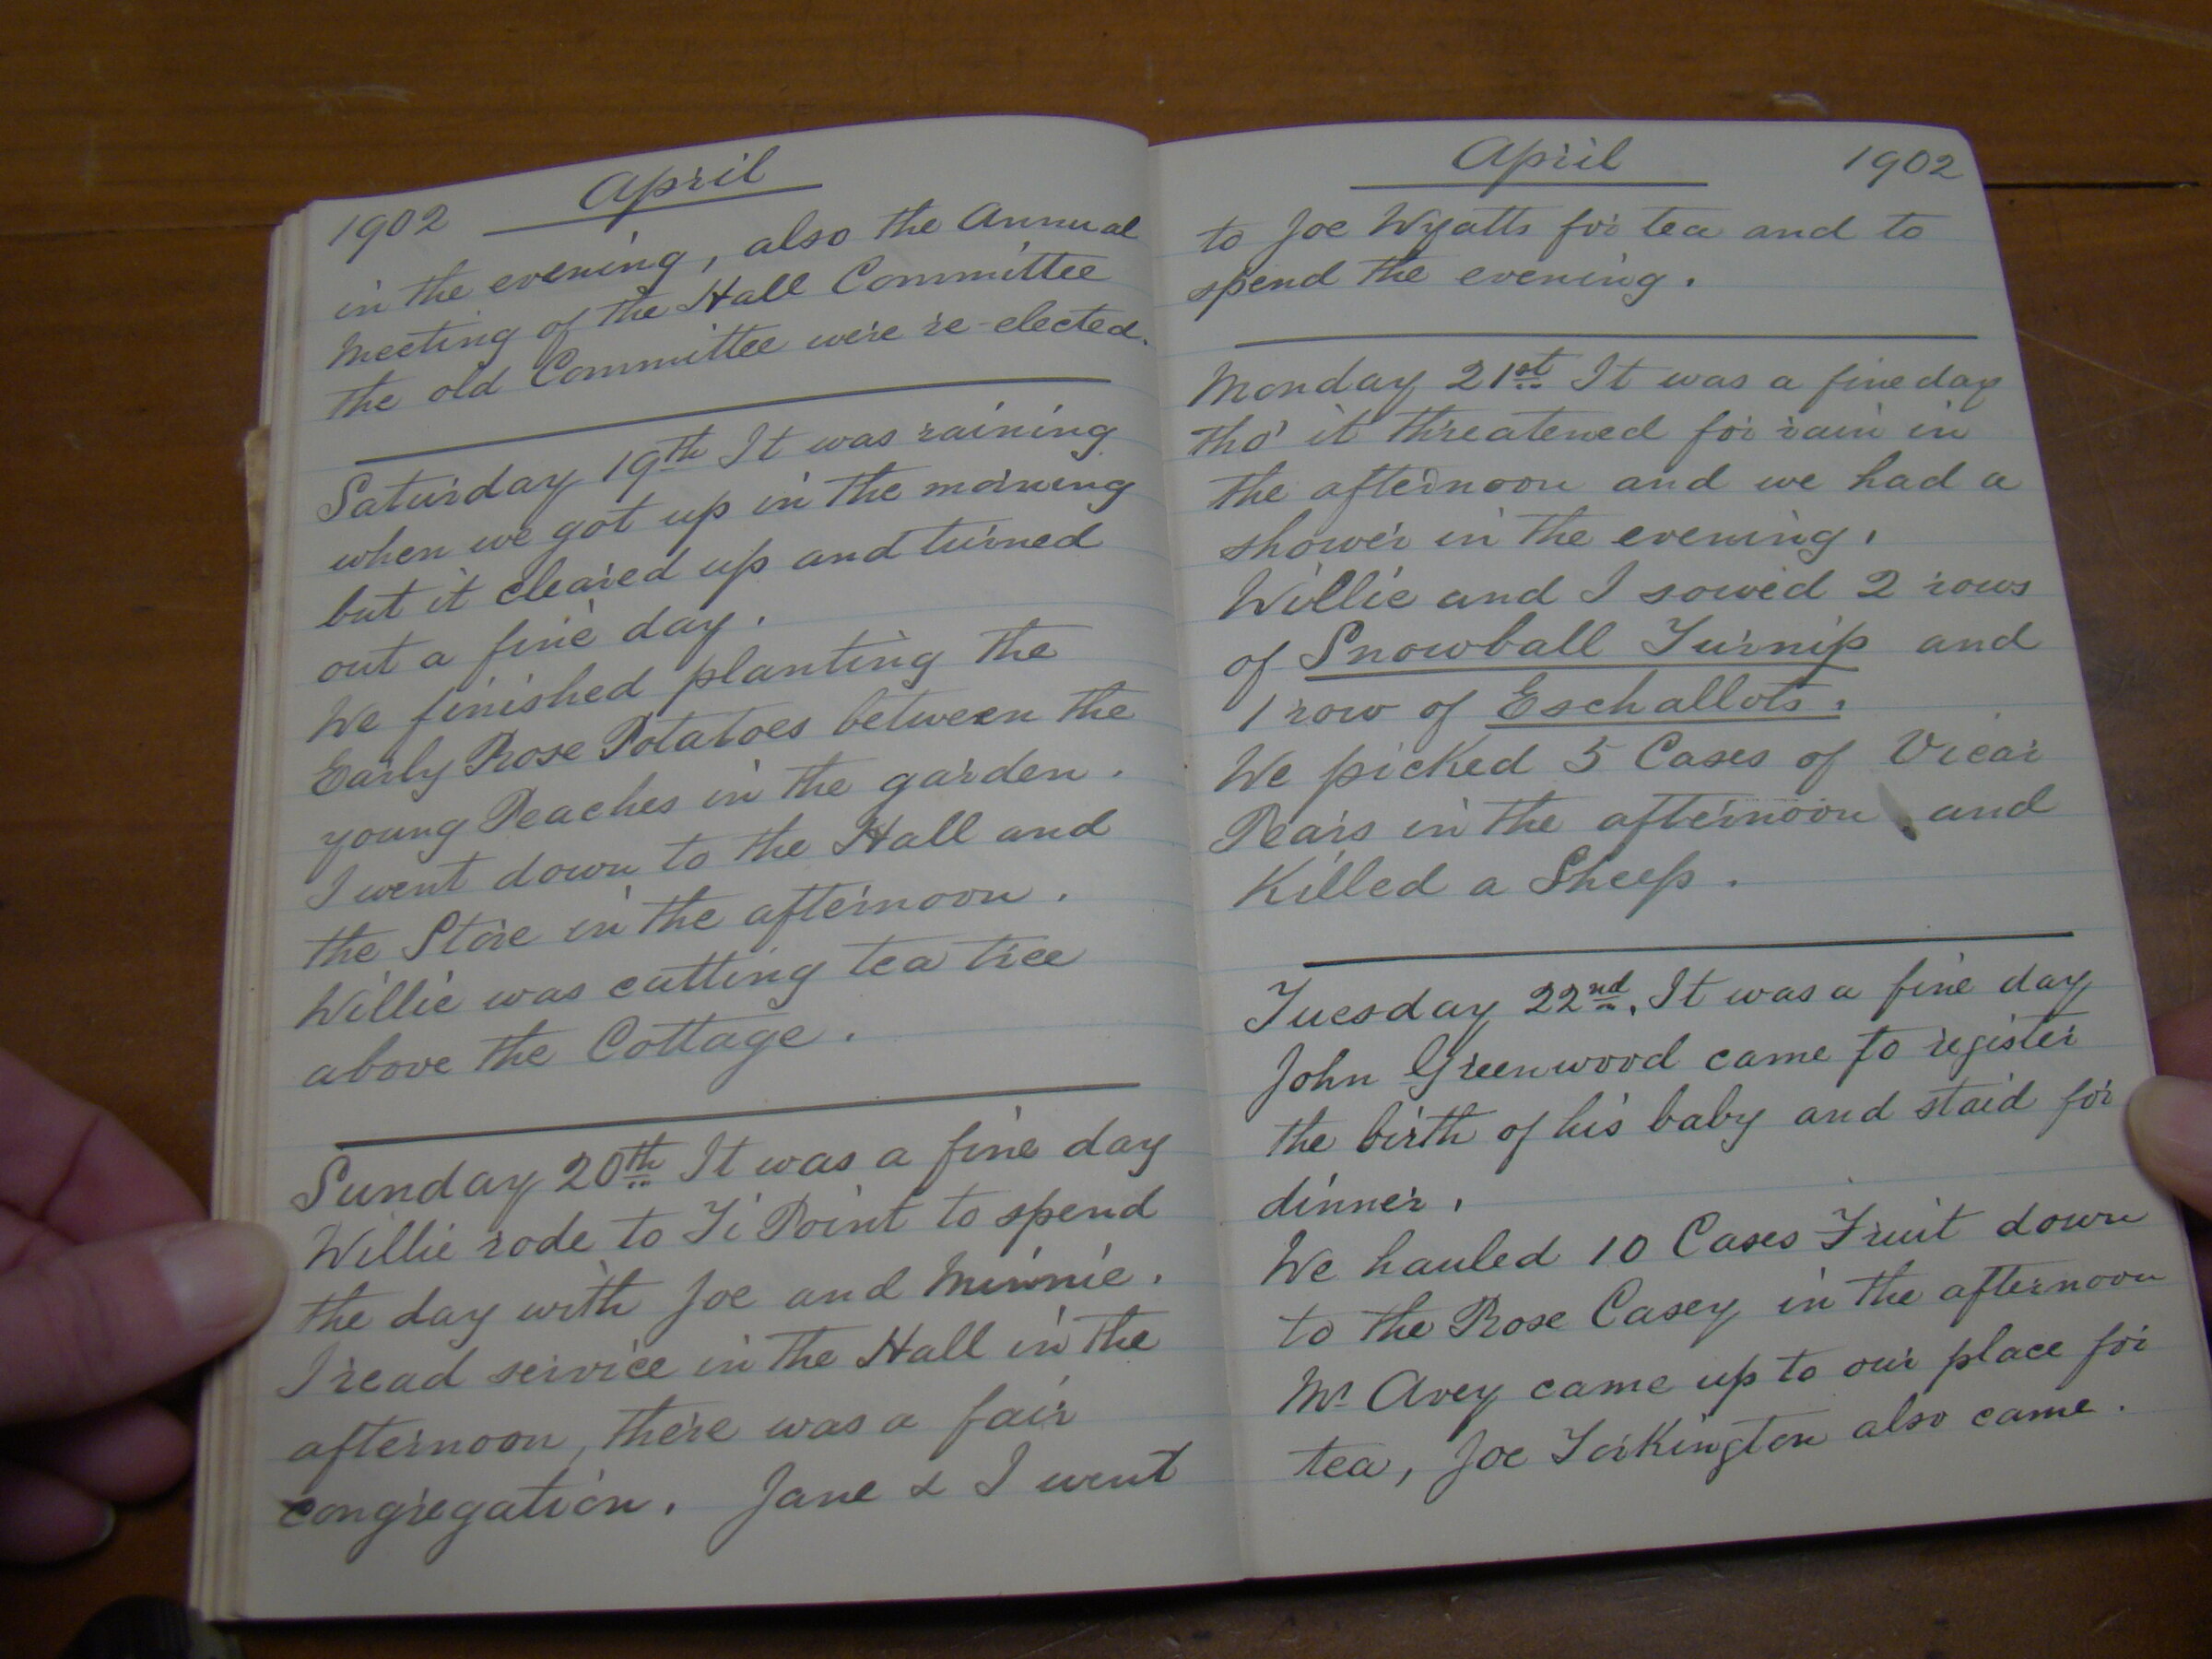 1902 April
in the evening, also the Annual
Meeting of the Hall Committee
the old Committee were re-elected.
Saturday 19th It was raining
when we got up in the morning
but it cleared up and turned
out a fine day.
We finished planting the
Early Rose Potatoes between the
young Peaches in the garden.
I went down to the Hall and
the Store in the afternoon.
Willie was cutting tea tree
above the Cottage.
Sunday 20th It was a fine day
Willie rode to Ti Point to spend
the day with Joe and Minnie.
I read service in the Hall in the
afternoon, there was a fair
congregation. Jane & I went
April 1902
to Joe Wyatts for tea and to
spend the evening.
Monday 21st It was a fine day
tho' it threatened for rain in
the afternoon and we had a
shower in the evening.
Willie and I sowed 2 rows
of Snowball Turnip and
1 row of Eschallots.
We picked 5 Cases of Vicar
Pears in the afternoon and
Killed a Sheep.
Tuesday 22nd. It was a fine day
John Greenwood came to register
the birth of his baby and staid for
dinner.
We hauled 10 Cases Fruit down
to the Rose Casey in the afternoon
Mr Avey came up to our place for
tea, Joe Torkington also came.